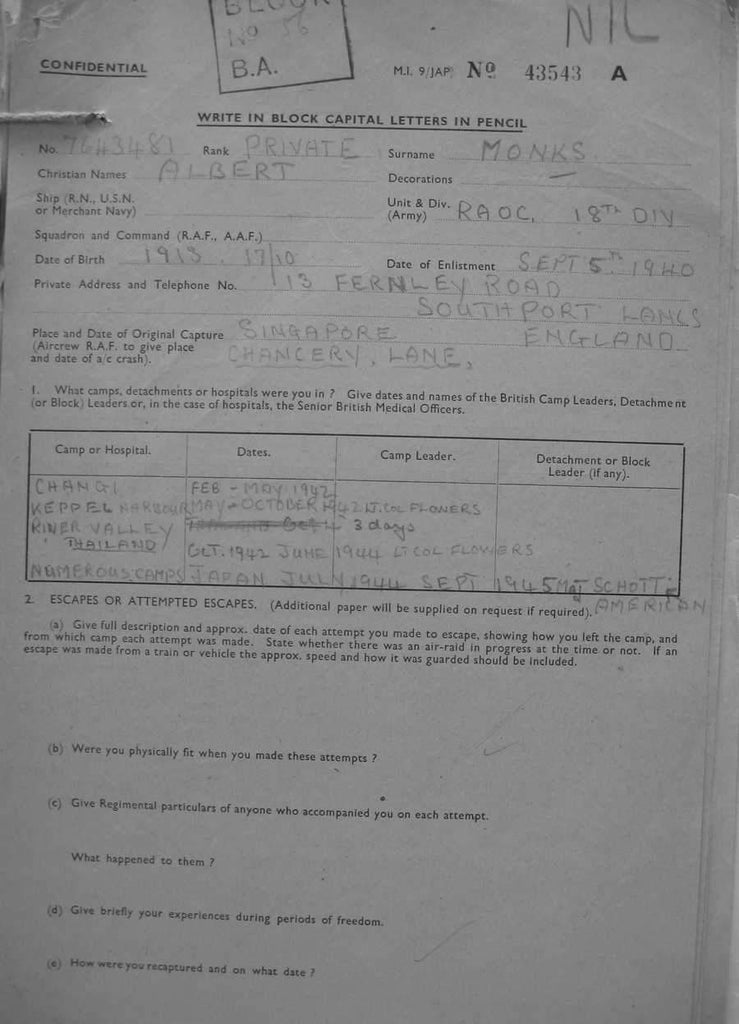 BLOCK
NO 56
B.A.
NIL
CONFIDENTIAL
M.I. 9/JAP/ No 43543 A
WRITE IN BLOCK CAPITAL LETTERS IN PENCIL
No. 7643481 Rank PRIVATE Surname MONKS
Christian Names ALBERT Decorations —
Ship (R.N., U.S.N. or Merchant Navy)
Unit & Div. (Army) RAOC. 18TH DIV
Squadron and Command (R.A.F., A.A.F.)
Date of Birth 1913. 17/10 Date of Enlistment SEPT 5TH 1940
Private Address and Telephone No. 13 FERNLEY ROAD
SOUTHPORT LANCS
ENGLAND
Place and Date of Original Capture SINGAPORE
(Aircrew R.A.F. to give place CHANCERY, LANE,
and date of a/c crash).
1. What camps, detachments or hospitals were you in ? Give dates and names of the British Camp Leaders, Detachment
(or Block) Leaders or, in the case of hospitals, the Senior British Medical Officers.
Camp or Hospital. Dates. Camp Leader. Detachment or Block
Leader (if any).
CHANGI FEB - MAY 1942
KEPPEL HARBOUR MAY - OCTOBER 1942 LT.COL FLOWERS
RIVER VALLEY 3 days
THAILAND OCT. 1942 JUNE 1944 LT COL FLOWERS
NUMEROUS CAMPS JAPAN JULY 1944 SEPT 1945 MAJ SCHOTT
AMERICAN
2. ESCAPES OR ATTEMPTED ESCAPES. (Additional paper will be supplied on request if required).
(a) Give full description and approx. date of each attempt you made to escape, showing how you left the camp, and
from which camp each attempt was made. State whether there was an air-raid in progress at the time or not. If an
escape was made from a train or vehicle the approx. speed and how it was guarded should be included.
(b) Were you physically fit when you made these attempts ?
(c) Give Regimental particulars of anyone who accompanied you on each attempt.
What happened to them ?
(d) Give briefly your experiences during periods of freedom.
(e) How were you recaptured and on what date ?